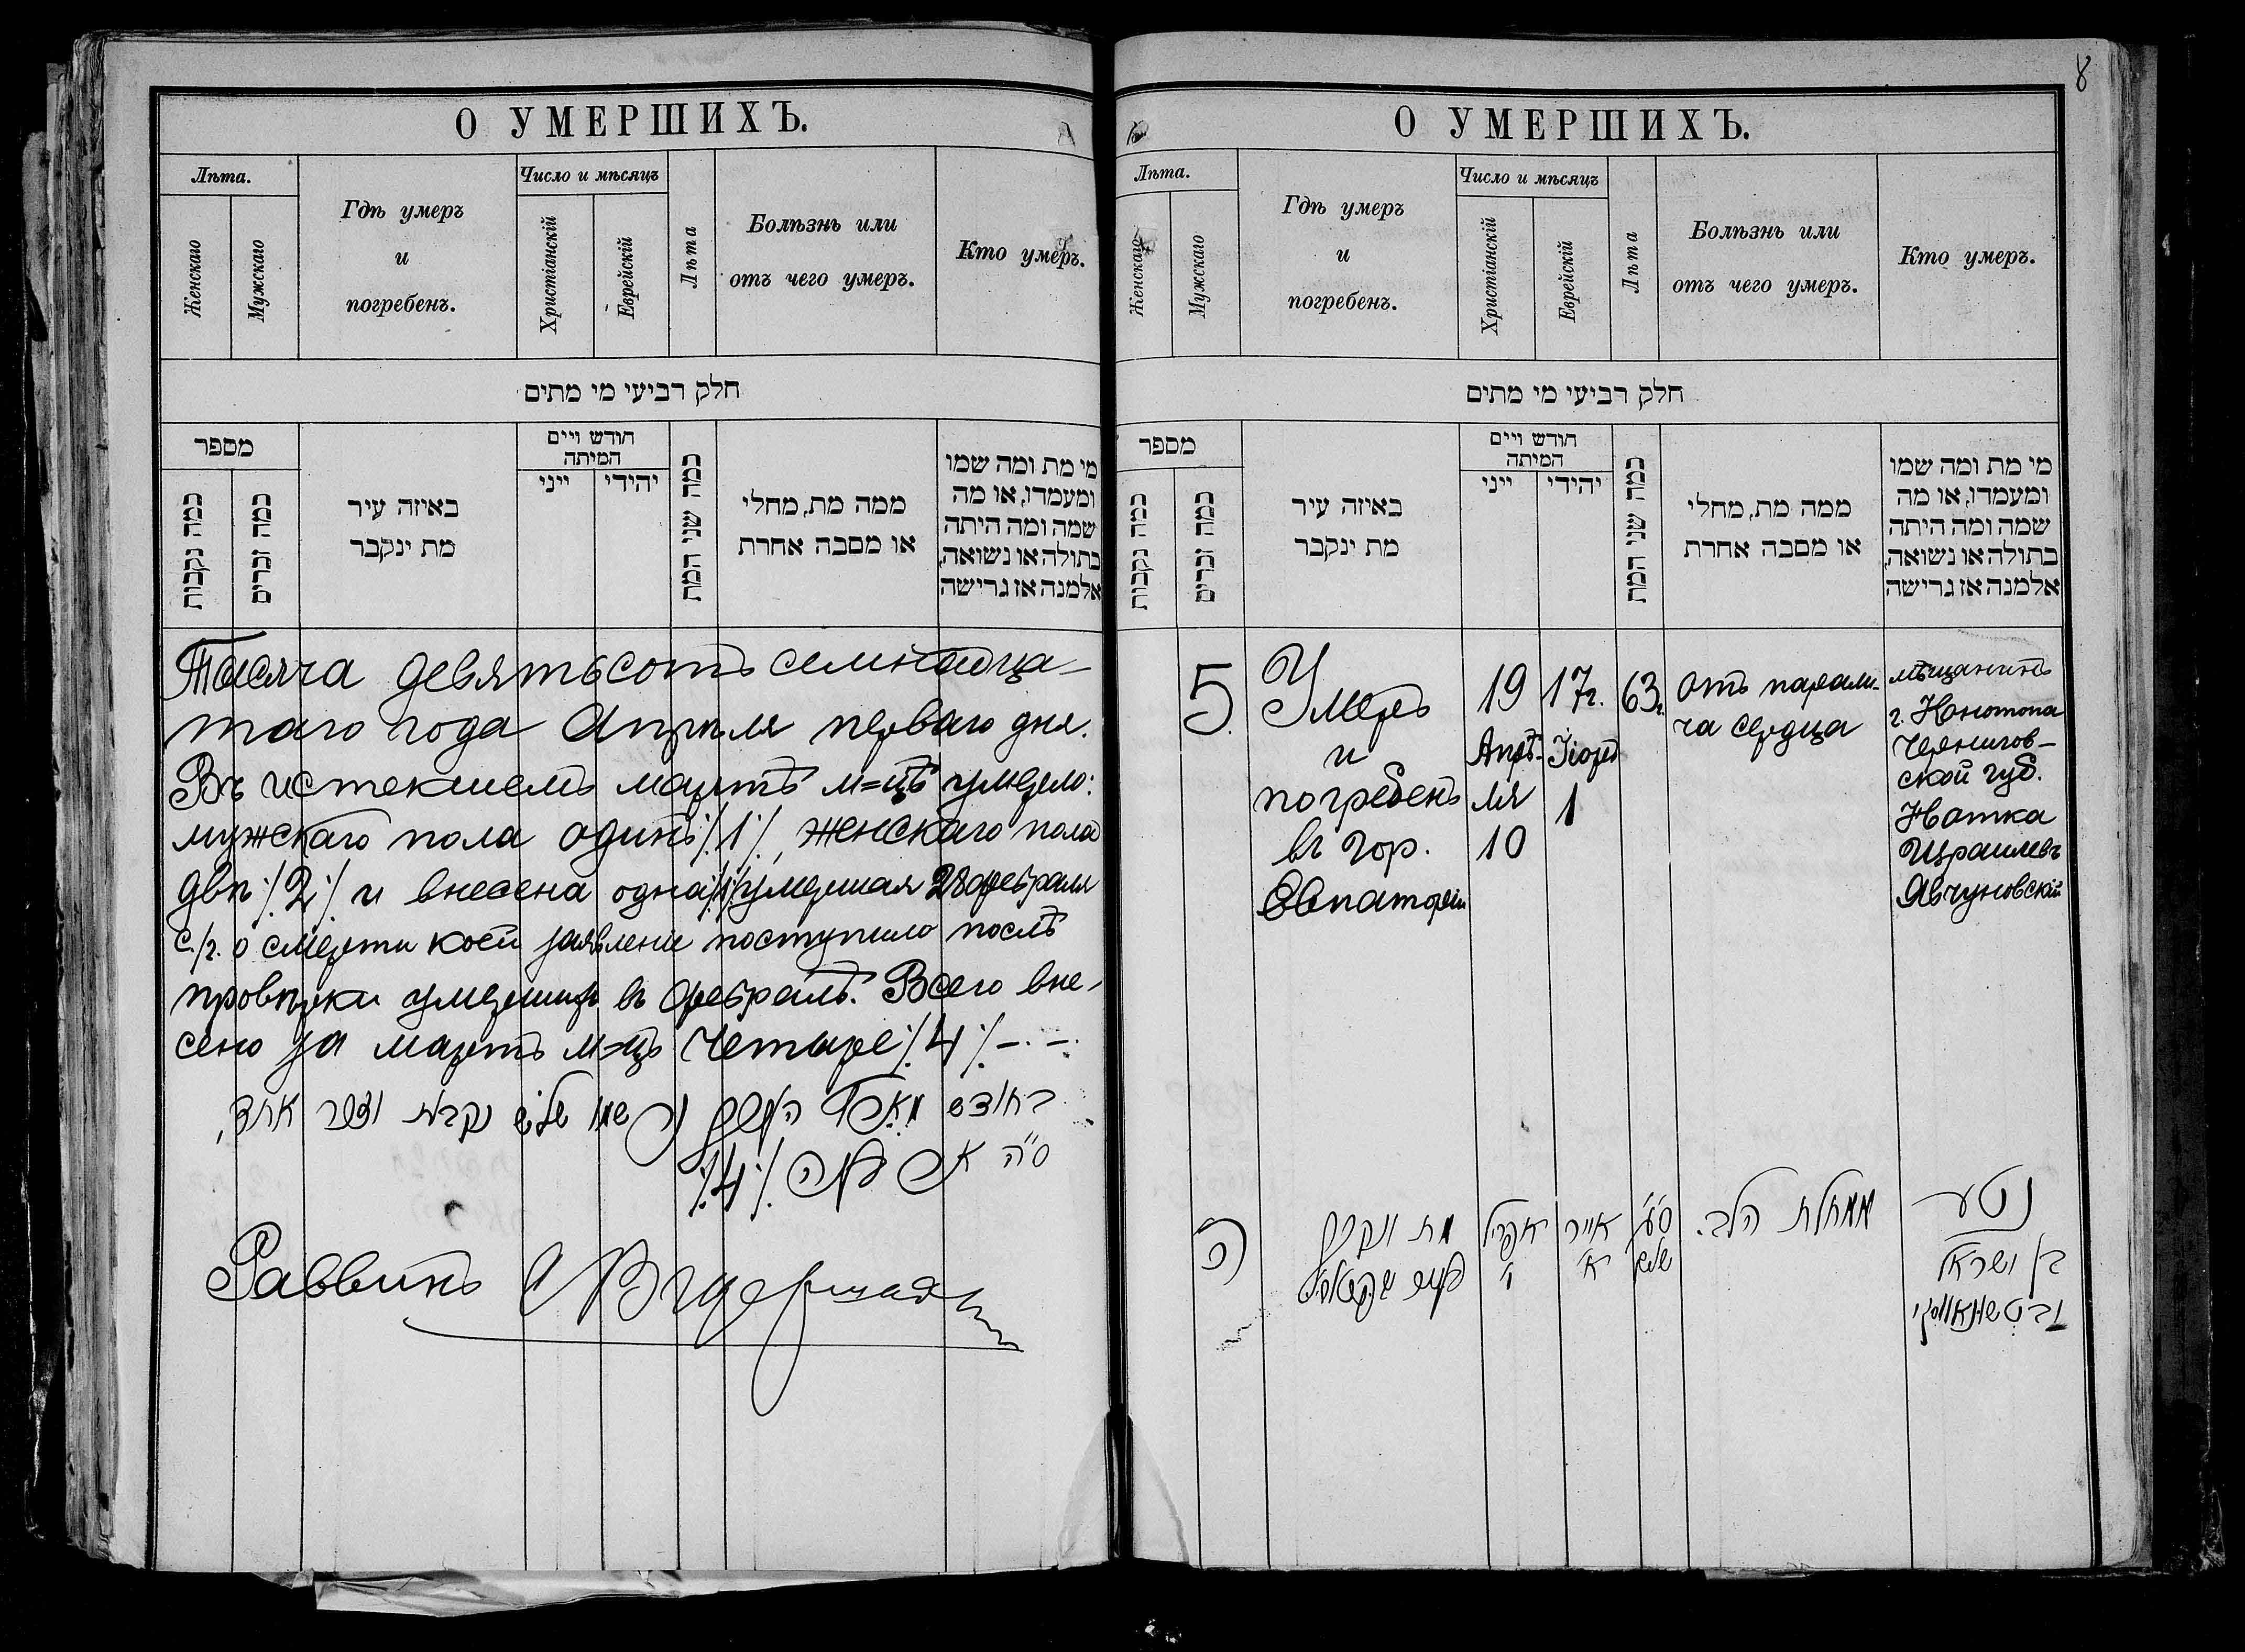 О УМЕРШИХЪ.
Лѣта.
Женскаго
Мужскаго
Гдѣ умеръ
и
погребенъ.
Число и мѣсяцъ
Христіанскій
Еврейскій
Лѣта
Болѣзнь или
отъ чего умеръ.
Кто умеръ.
חלק רביעי מי מתים
מספר
כמה נקבות
כמה זכרים
באיזה עיר
מת ינקבר
חודש ויים
המיתה
ייני
יהידי
כמה שני המת
ממה מת, מחלי
או מסבה אחרת
מי מת ומה שמו
ומעמדו, או מה
שמה ומה היתה
בתולה או נשואה,
אלמנה אז גרישה
Тысяча девятьсотъ семнадца-
таго года Апрѣля перваго дня.
Въ истекшемъ мартѣ м=цѣ умерло:
мужскаго пола одинъ ·/.1·/., женскаго пола
двѣ ·/.2·/. и внесена одна ·/.1·/. умершая 28 февраля
с./г. о смерти коей заявленіе поступило послѣ
провѣрки умершихъ въ февралѣ. Всего вне-
сено за мартъ м=цъ Четыре ·/.4·/. -.-.
בחודש מארט נקבות וזכר אחד,
ס״ה ·/.4·/.
Раввинъ
8
О УМЕРШИХЪ.
Лѣта.
Женскаго
Мужскаго
Гдѣ умеръ
и
погребенъ.
Число и мѣсяцъ
Христіанскій
Еврейскій
Лѣта
Болѣзнь или
отъ чего умеръ.
Кто умеръ.
חלק רביעי מי מתים
מספר
כמה נקבות
כמה זכרים
באיזה עיר
מת ינקבר
חודש ויים
המיתה
ייני
יהידי
כמה שני המת
ממה מת, מחלי
או מסבה אחרת
מי מת ומה שמו
ומעמדו, או מה
שמה ומה היתה
בתולה או נשואה,
אלמנה אז גרישה
5.
Умеръ
и
погребенъ
въ гор.
Евпаторіи
19
Апрѣ-
ля
10
17г.
Іюръ
1
63г.
Отъ парали-
ча сердца
мѣщанинъ
г. Конотопа
Чернигов-
ской губ.
Нотка
Израилевъ
Явчуновскій
ה
מת ונקבר
פה
אפריל
י
אייר
א׳
ס״ג
שנים
ממחלת הלב.
נטע
בן ישראל